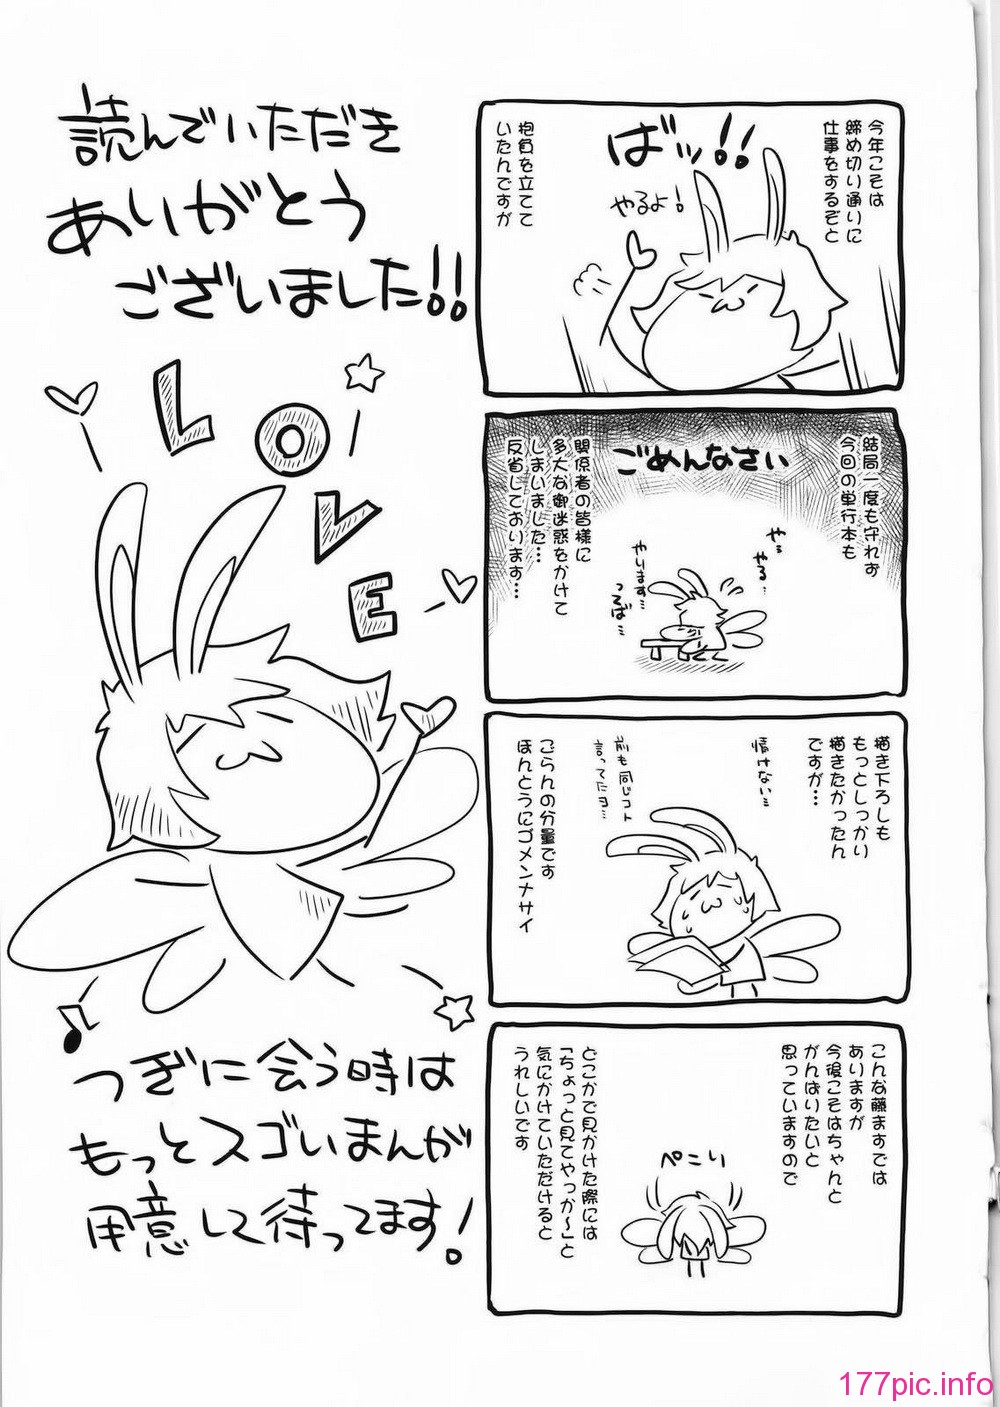 今年こそは
締め切り通りに
仕事をするぞと
ばッ!!
やるよ!
抱負を立てて
いたんですが
結局一度も守れず
今回の単行本も
ごめんなさい
関係者の皆様に
多大な御迷惑をかけて
しまいました…
反省しております…
やる…
やります…
描き下ろしも
もっとしっかり
描きたかったん
ですが…
情けない…
前も同じコト
言ってたヨ…
ごらんの分量です
ほんとうにゴメンナサイ
こんな藤ますでは
ありますが
今後こそはちゃんと
がんばりたいと
思っていますので
ぺこり
どこかで見かけた際には
「ちょっと見てやっか～」と
気にかけていただけると
うれしいです
読んでいただき
ありがとう
ございました!!
LOVE
つぎに会う時は
もっとスゴいまんが
用意して待ってます!
177pic.info